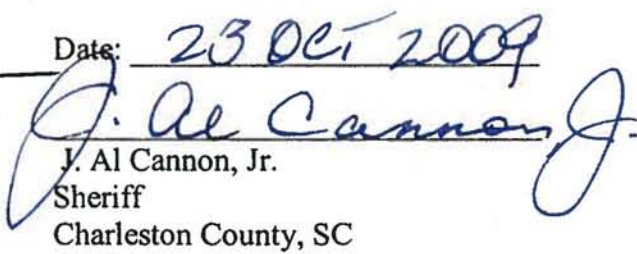 Date: 23 OCT 2009
J. Al Cannon Jr.
J. Al Cannon, Jr.
Sheriff
Charleston County, SC